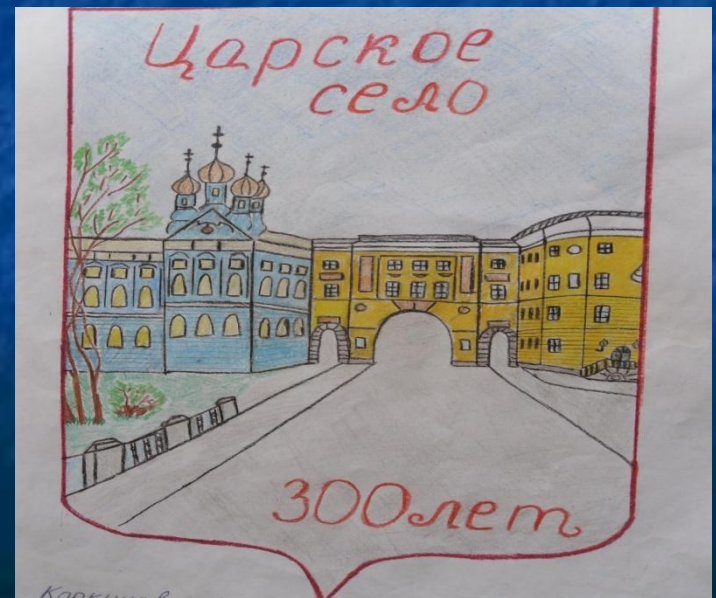 Царское
село
300 лет